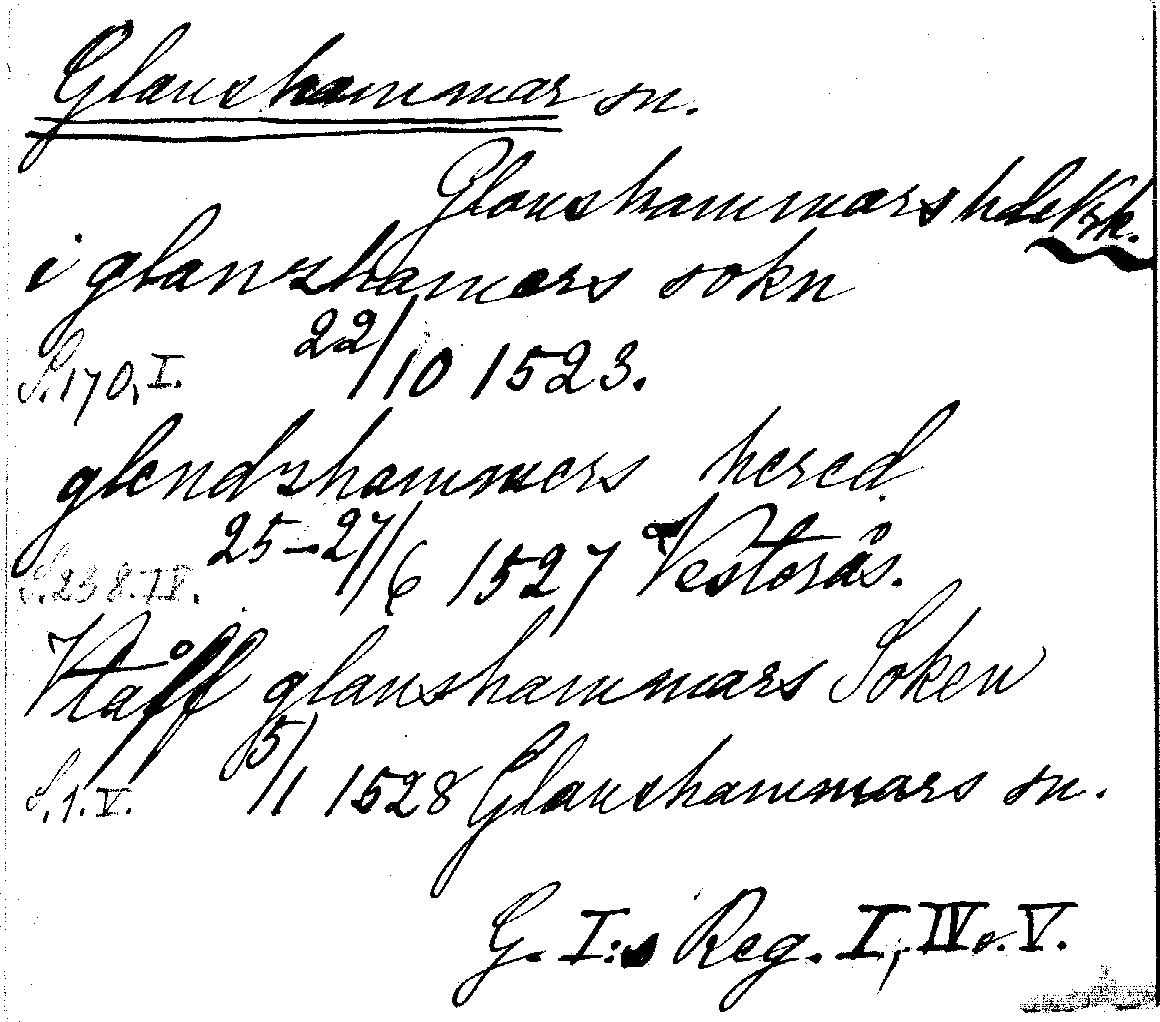 Glanshammar sn.
Glanshammars hde
i glanzhamars sokn
S. 170, I. 22/10 1523.
glendzhammers hered
S. 238. IV. 25–27/6 1527 Vesterås.
Vtåff glanshammars Soken
S. 1. V. 5/1 1528 Glanshammars sn.
G. I:s Reg. I, IV o. V.